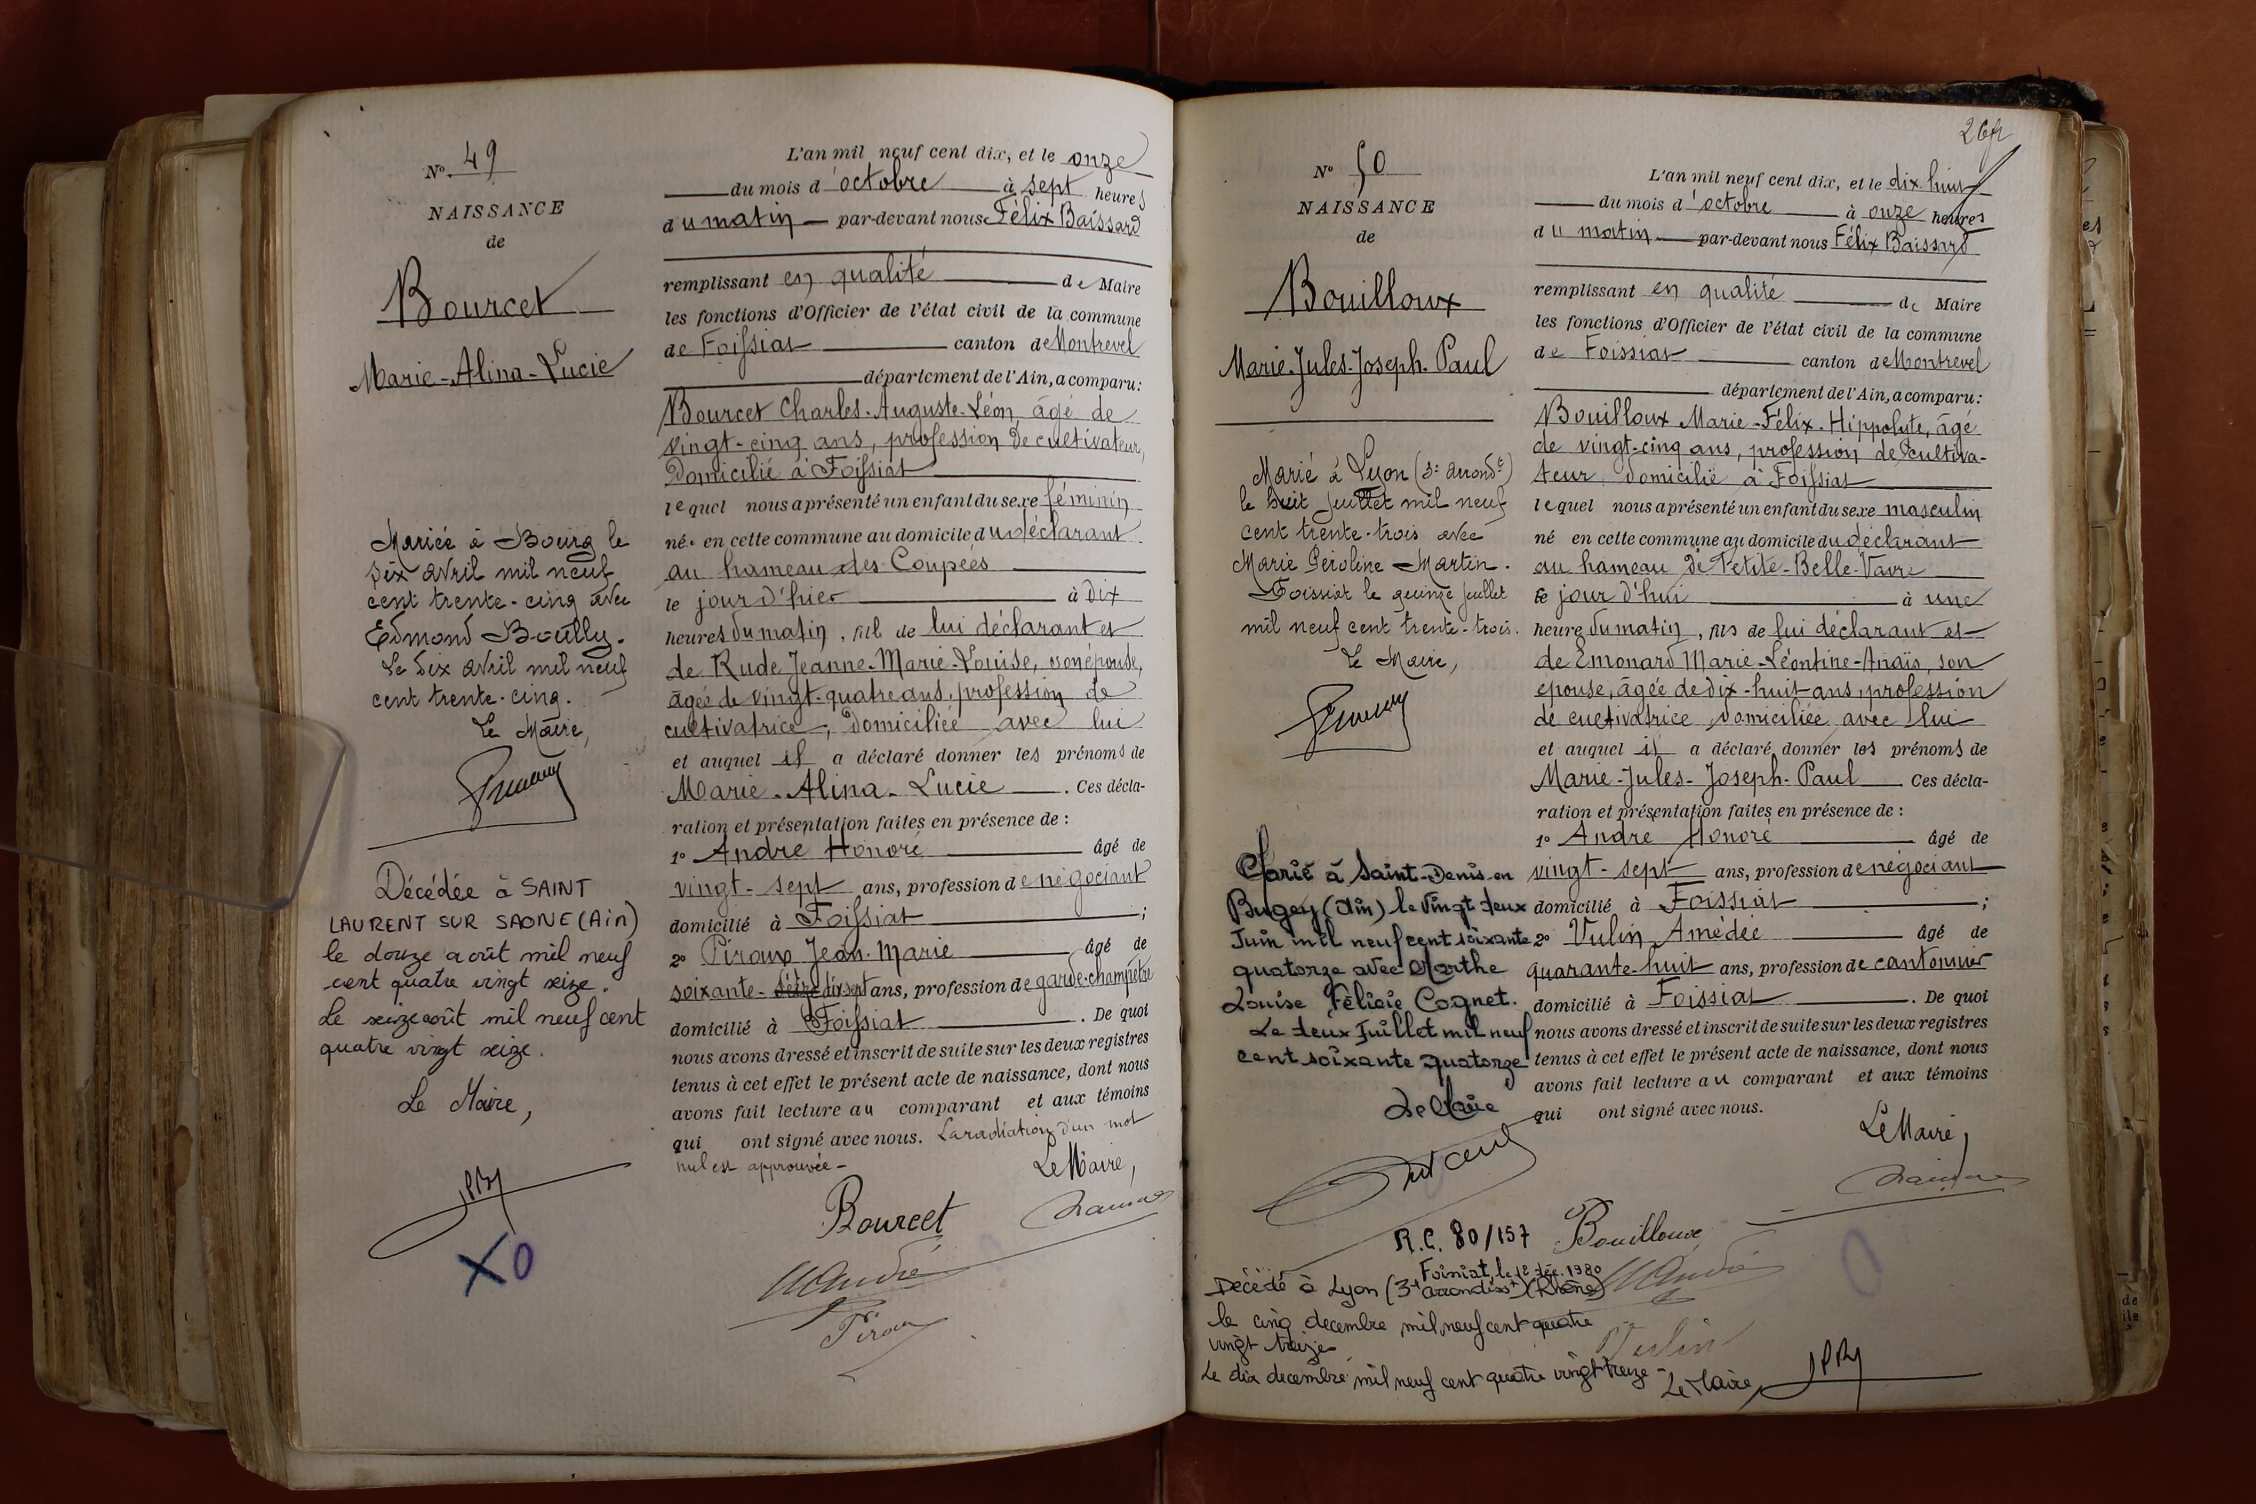 No. 49
NAISSANCE
de
Bourcet
Marie-Alina-Lucie
Mariée à Bourg le
six avril mil neuf
cent trente-cinq avec
Edmond Boully.
Le dix avril mil neuf
cent trente-cinq.
Le Maire,
Décédée à SAINT
LAURENT SUR SAONE (Ain)
le douze août mil neuf
cent quatre vingt seize.
Le seize août mil neuf cent
quatre vingt seize.
Le Maire,
XO
L'an mil neuf cent dix, et le onze
du mois d'octobre à sept heures
du matin par-devant nous Félix Baissard
remplissant en qualité de Maire
les fonctions d'Officier de l'état civil de la commune
de Foissiat canton de Montrevel
département de l'Ain, a comparu:
Bourcet Charles-Auguste-Léon, âgé de
vingt-cinq ans, profession de cultivateur,
domicilié à Foissiat
lequel nous a présenté un enfant du sexe féminin
né en cette commune au domicile du déclarant
au hameau des Coupées
le jour d'hier à dix
heures du matin, fill de lui déclarant et
de Rude Jeanne-Marie-Louise, son épouse,
âgée de vingt-quatre ans, profession de
cultivatrice, domiciliée avec lui
et auquel il a déclaré donner les prénoms de
Marie-Alina-Lucie. Ces décla-
ration et présentation faites en présence de :
1º André Honoré âgé de
vingt-sept ans, profession de négociant
domicilié à Foissiat ;
2º Piroux Jean-Marie âgé de
soixante-seize dix sept ans, profession de garde-champêtre
domicilié à Foissiat. De quoi
nous avons dressé et inscrit de suite sur les deux registres
tenus à cet effet le présent acte de naissance, dont nous
avons fait lecture au comparant et aux témoins
qui ont signé avec nous. La radiation d'un mot
nul est approuvée -
Le Maire,
Bourcet
H André
Piroux
No 50
NAISSANCE
de
Bouilloux
Marie-Jules-Joseph-Paul
Marié à Lyon (3e arrondt)
le huit juillet mil neuf
cent trente-trois avec
Marie Péroline Martin.
Foissiat le quinze juillet
mil neuf cent trente-trois.
Le Maire,
Marié à Saint-Denis-en
Bugey (Ain) le vingt deux
Juin mil neuf cent soixante
quatorze avec Marthe
Louise Félicie Cognet.
Le deux Juillet mil neuf
cent soixante quatorze
Le Maire
L'an mil neuf cent dix, et le dix-huit
du mois d'octobre à onze heures
du matin par-devant nous Félix Baissard
remplissant en qualité de Maire
les fonctions d'Officier de l'état civil de la commune
de Foissiat canton de Montrevel
département de l'Ain, a comparu:
Bouilloux Marie-Félix-Hippolyte, âgé
de vingt-cinq ans, profession de cultiva-
teur, domicilié à Foissiat
lequel nous a présenté un enfant du sexe masculin
né en cette commune au domicile du déclarant
au hameau de Petite-Belle-Vavre
ce jour d'hui à une
heure du matin, fils de lui déclarant et
de Emonard Marie-Léontine-Anaïs, son
épouse, âgée de dix-huit ans, profession
de cultivatrice domiciliée avec lui
et auquel il a déclaré donner les prénoms de
Marie-Jules-Joseph-Paul Ces décla-
ration et présentation faites en présence de :
1º André Honoré âgé de
vingt-sept ans, profession de négociant
domicilié à Foissiat ;
2º Vulin Amédée âgé de
quarante-huit ans, profession de cantonnier
domicilié à Foissiat. De quoi
nous avons dressé et inscrit de suite sur les deux registres
tenus à cet effet le présent acte de naissance, dont nous
avons fait lecture au comparant et aux témoins
qui ont signé avec nous.
Le Maire,
R.C. 80/157 Bouilloux
Foissiat, le 12 déc. 1980
H André
Décédé à Lyon (3e arrondisst) (Rhône)
le cinq decembre mil neuf cent quatre
vingt treize
Vulin
Le dix decembre mil neuf cent quatre vingt treize -
Le Maire,